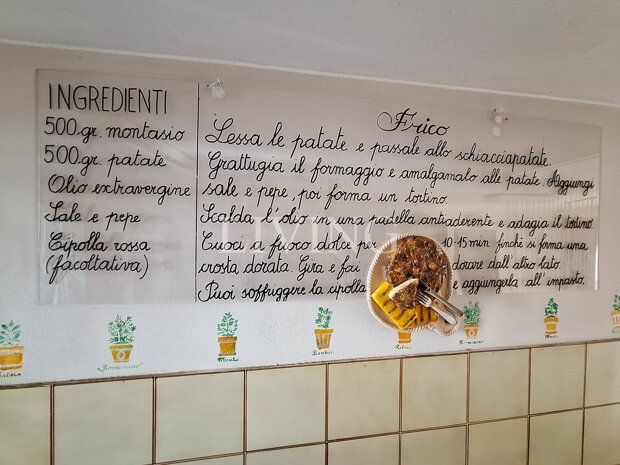 INGREDIENTI
500.gr. montasio
500.gr. patate
Olio extravergine
Sale e pepe
Cipolla rossa
(facoltativa)
Frico
Lessa le patate e passale allo schiacciapatate.
Grattugia il formaggio e amalgamalo alle patate. Aggiungi
sale e pepe, poi forma un tortino.
Scalda l'olio in una padella antiaderente e adagia il tortino.
Cuoci a fuoco dolce per 10-15 min. finché si forma una
crosta dorata. Gira e fai dorare dall'altro lato.
Puoi soffriggere la cipolla e aggiungerla all'impasto.
LIVING
Rosmarino
Menta